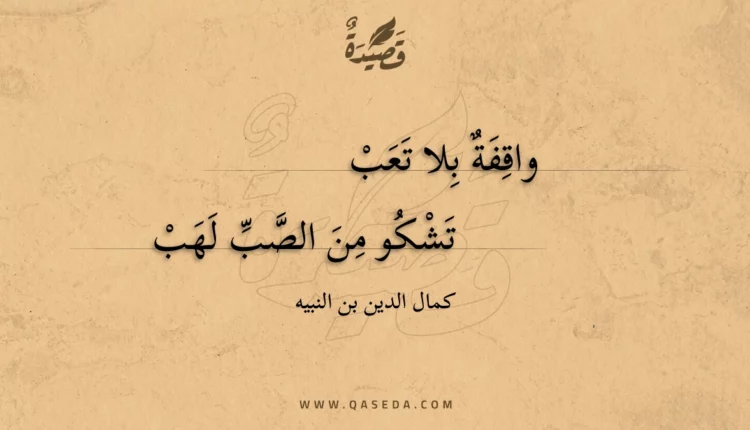 قَصِيْدَةٌ
واقِفَةٌ بِلا تَعَبْ
تَشْكُو مِنَ الصَّبِّ لَهَبْ
كمال الدين بن النبيه
WWW.QASEDA.COM